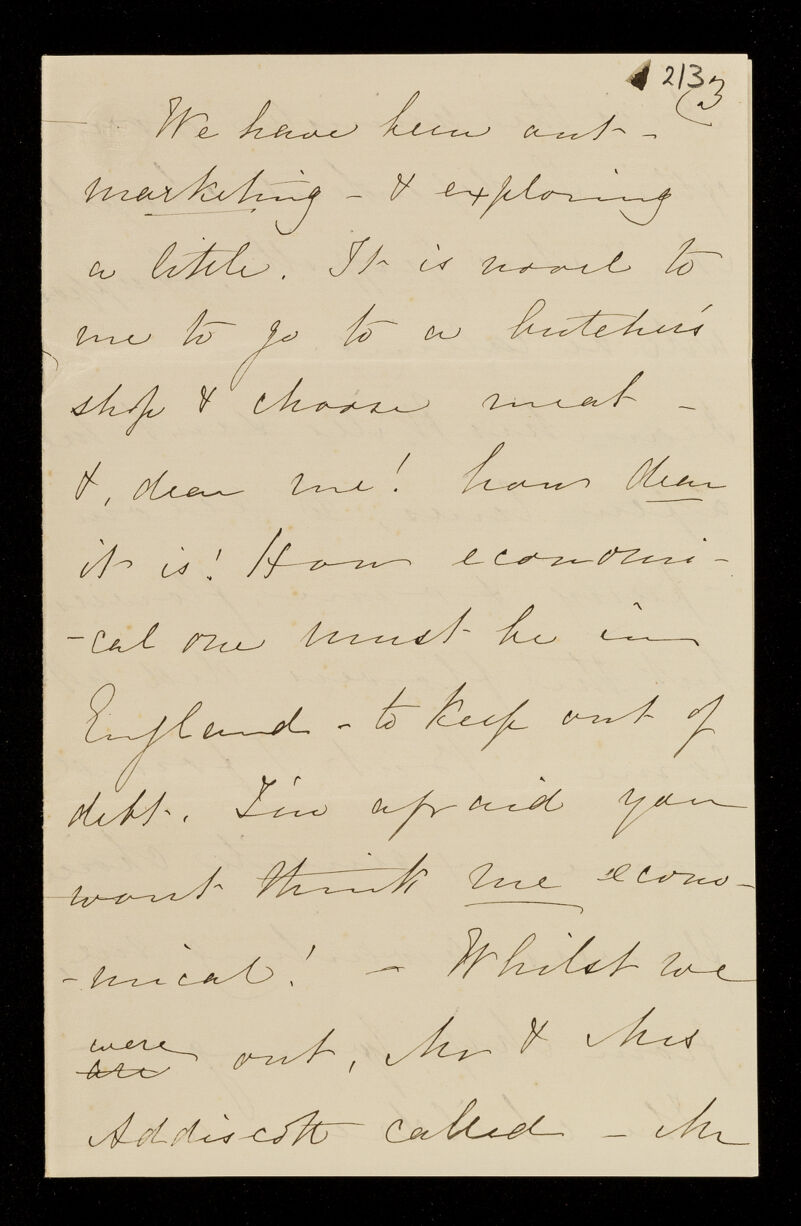 213
(3
We have been out -
marketing - & exploring
a little. It is novel to
me to go to a butcher's
shop & choose meat -
&, dear me! how dear
it is! How economi-
-cal one must be in
England - to keep out of
debt. I'm afraid you
wont think me econo-
-mical! - Whilst we
were
are out, Mr & Mrs
Addiscott called - Mr